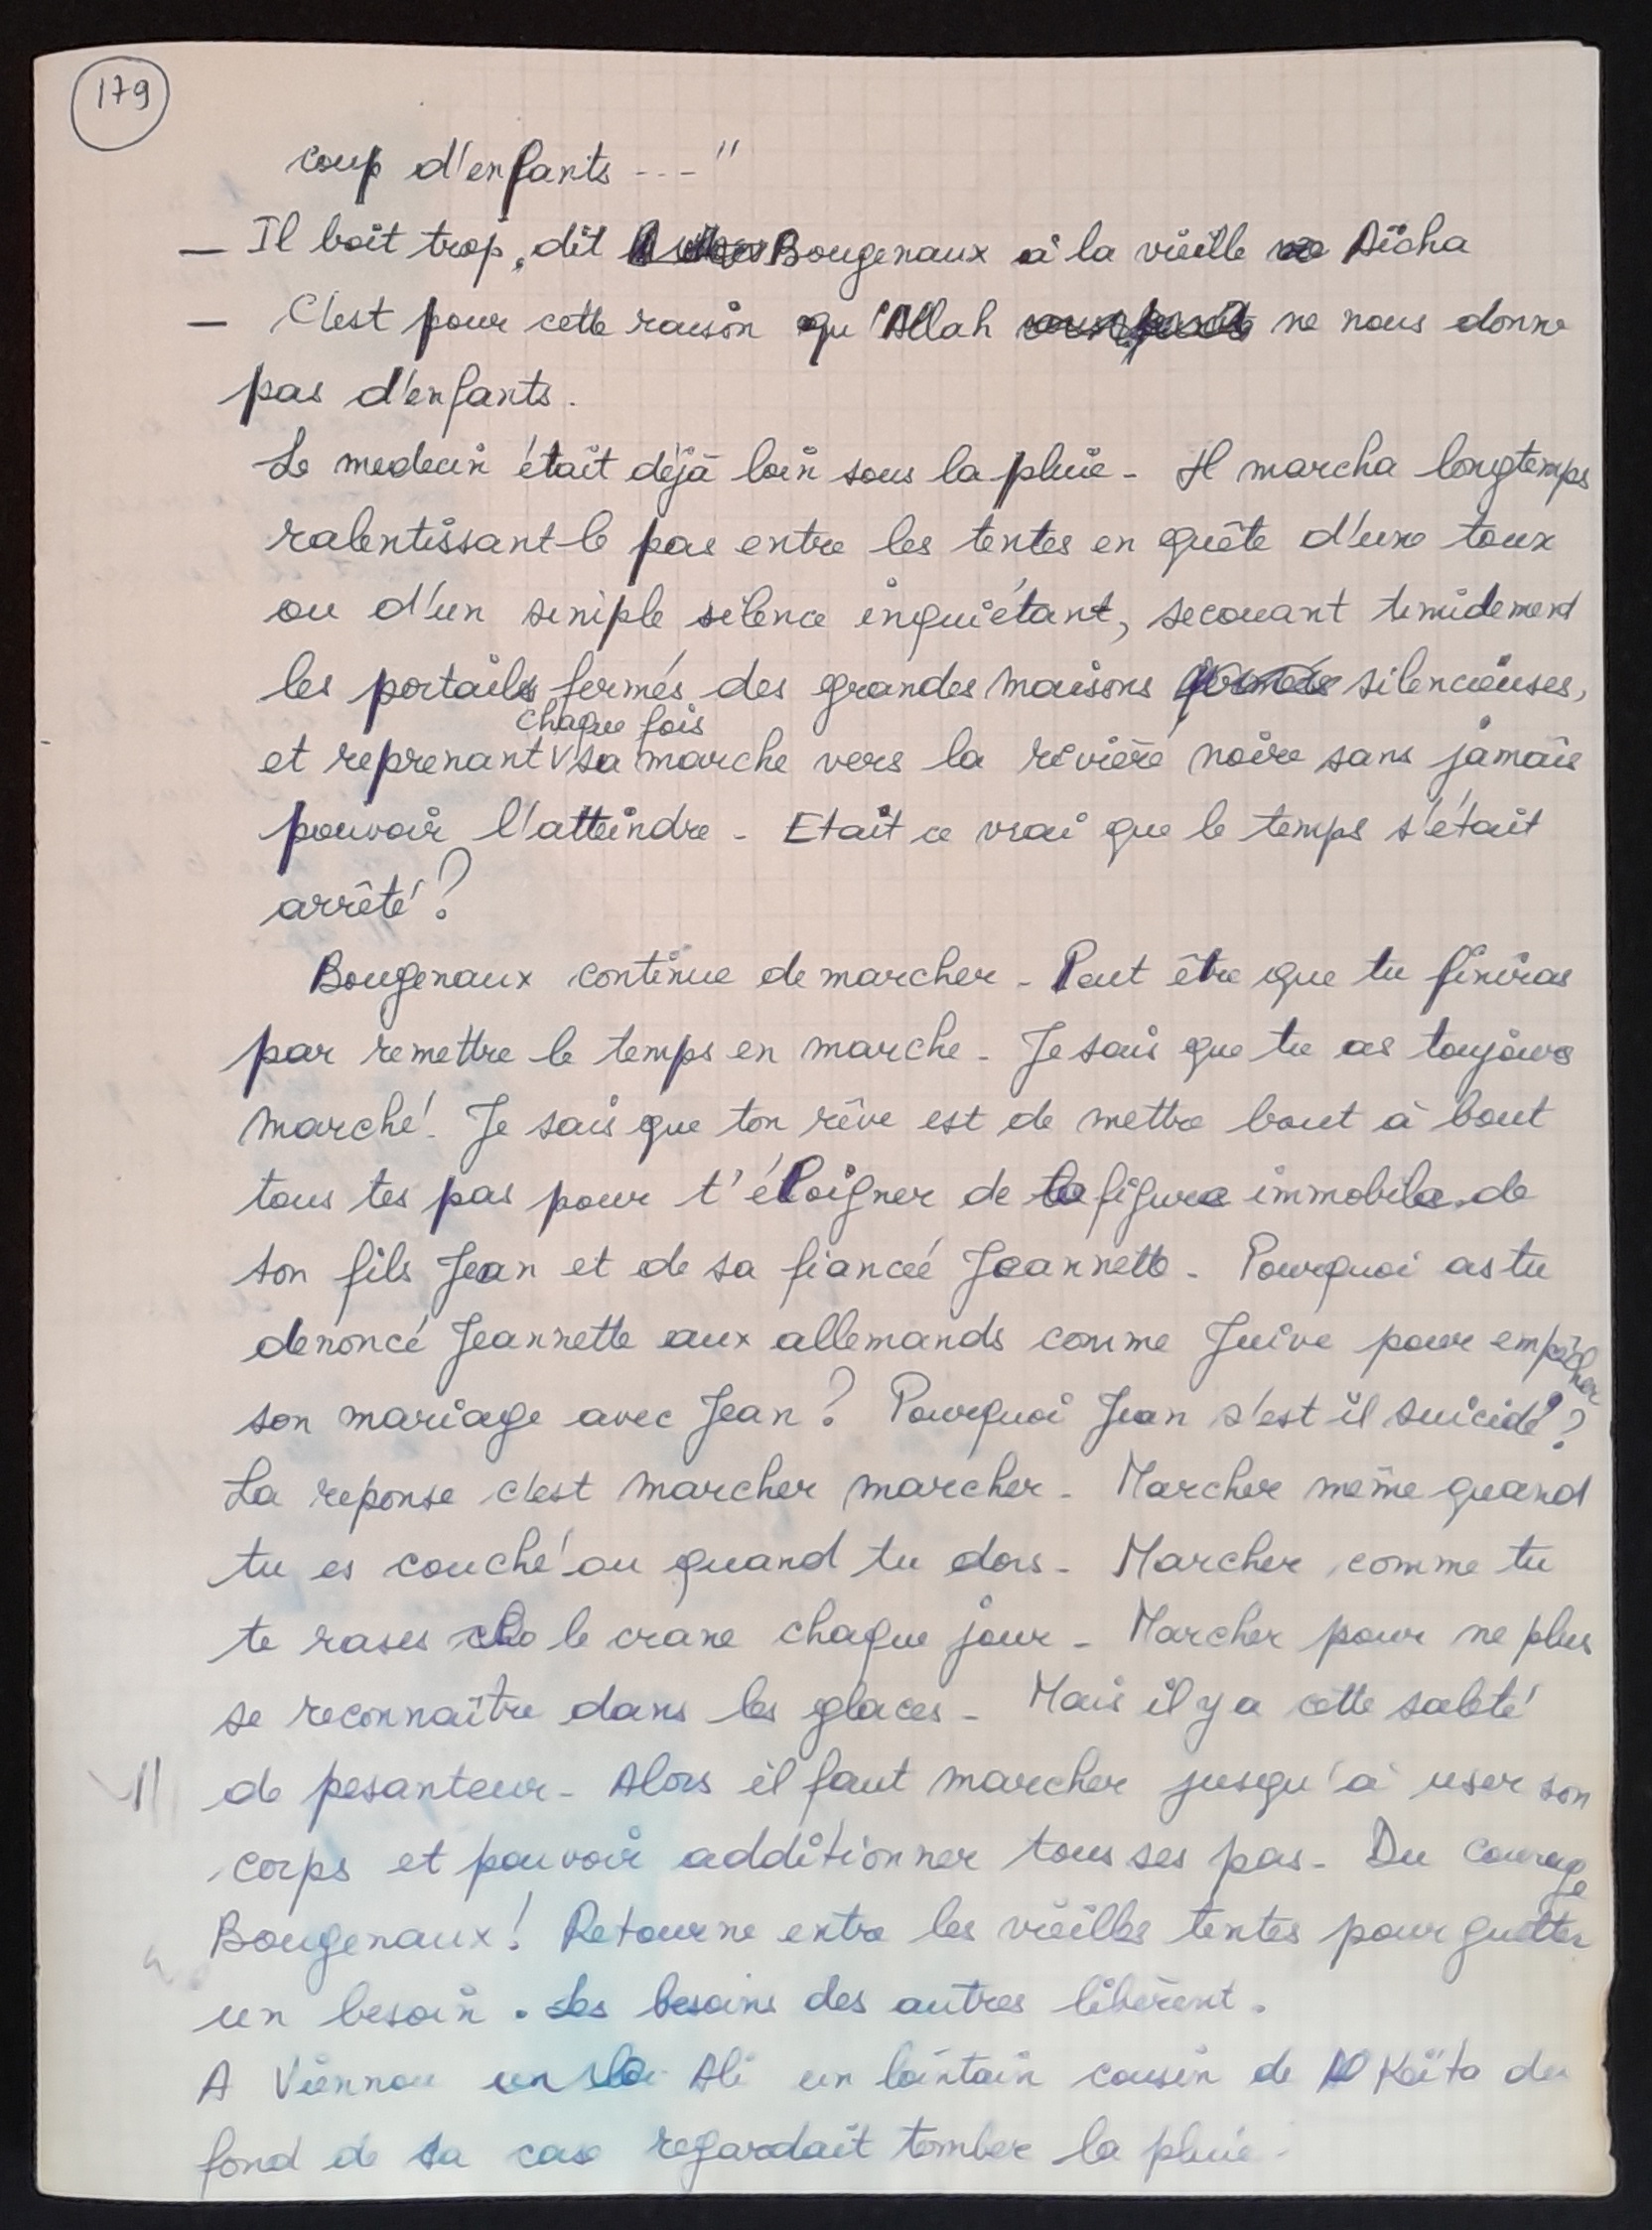 179
coup d'enfants ---"
— Il boit trop, dit Bougenaux à la vieille Aïcha
— C'est pour cette raison qu'Allah ne nous donne
pas d'enfants.
Le medecin était déjà loin sous la pluie - Il marcha longtemps
ralentissant le pas entre les tentes en quête d'une toux
ou d'un simple silence inquiétant, secouant timidement
les portails fermés des grandes maisons fermées silencieuses,
chaque fois
et reprenant V sa marche vers la rivière noire sans jamais
pouvoir l'atteindre - Etait ce vrai que le temps s'était
arrêté ?
Bougenaux continue de marcher - Peut être que tu finiras
par remettre le temps en marche - Je sais que tu as toujours
marché - Je sais que ton rêve est de mettre bout à bout
tous tes pas pour t'éloigner de la figure immobile de
ton fils Jean et de sa fiancée Jeannette - Pourquoi as tu
denoncé Jeannette aux allemands comme Juive pour empêcher
son mariage avec Jean ? Pourquoi Jean s'est il suicidé ?
La reponse c'est marcher marcher - Marcher même quand
tu es couché ou quand tu dors - Marcher comme tu
te rases le crane chaque jour - Marcher pour ne plus
se reconnaître dans les glaces - Mais il y a cette saleté
de pesanteur - Alors il faut marcher jusqu'à user son
corps et pouvoir additionner tous ses pas - Du courage
Bougenaux ! Retourne entre les vieilles tentes pour guetter
un besoin . Les besoins des autres libèrent .
A Viennou Ali un lointain cousin de Keïta du
fond de sa case regardait tomber la pluie -